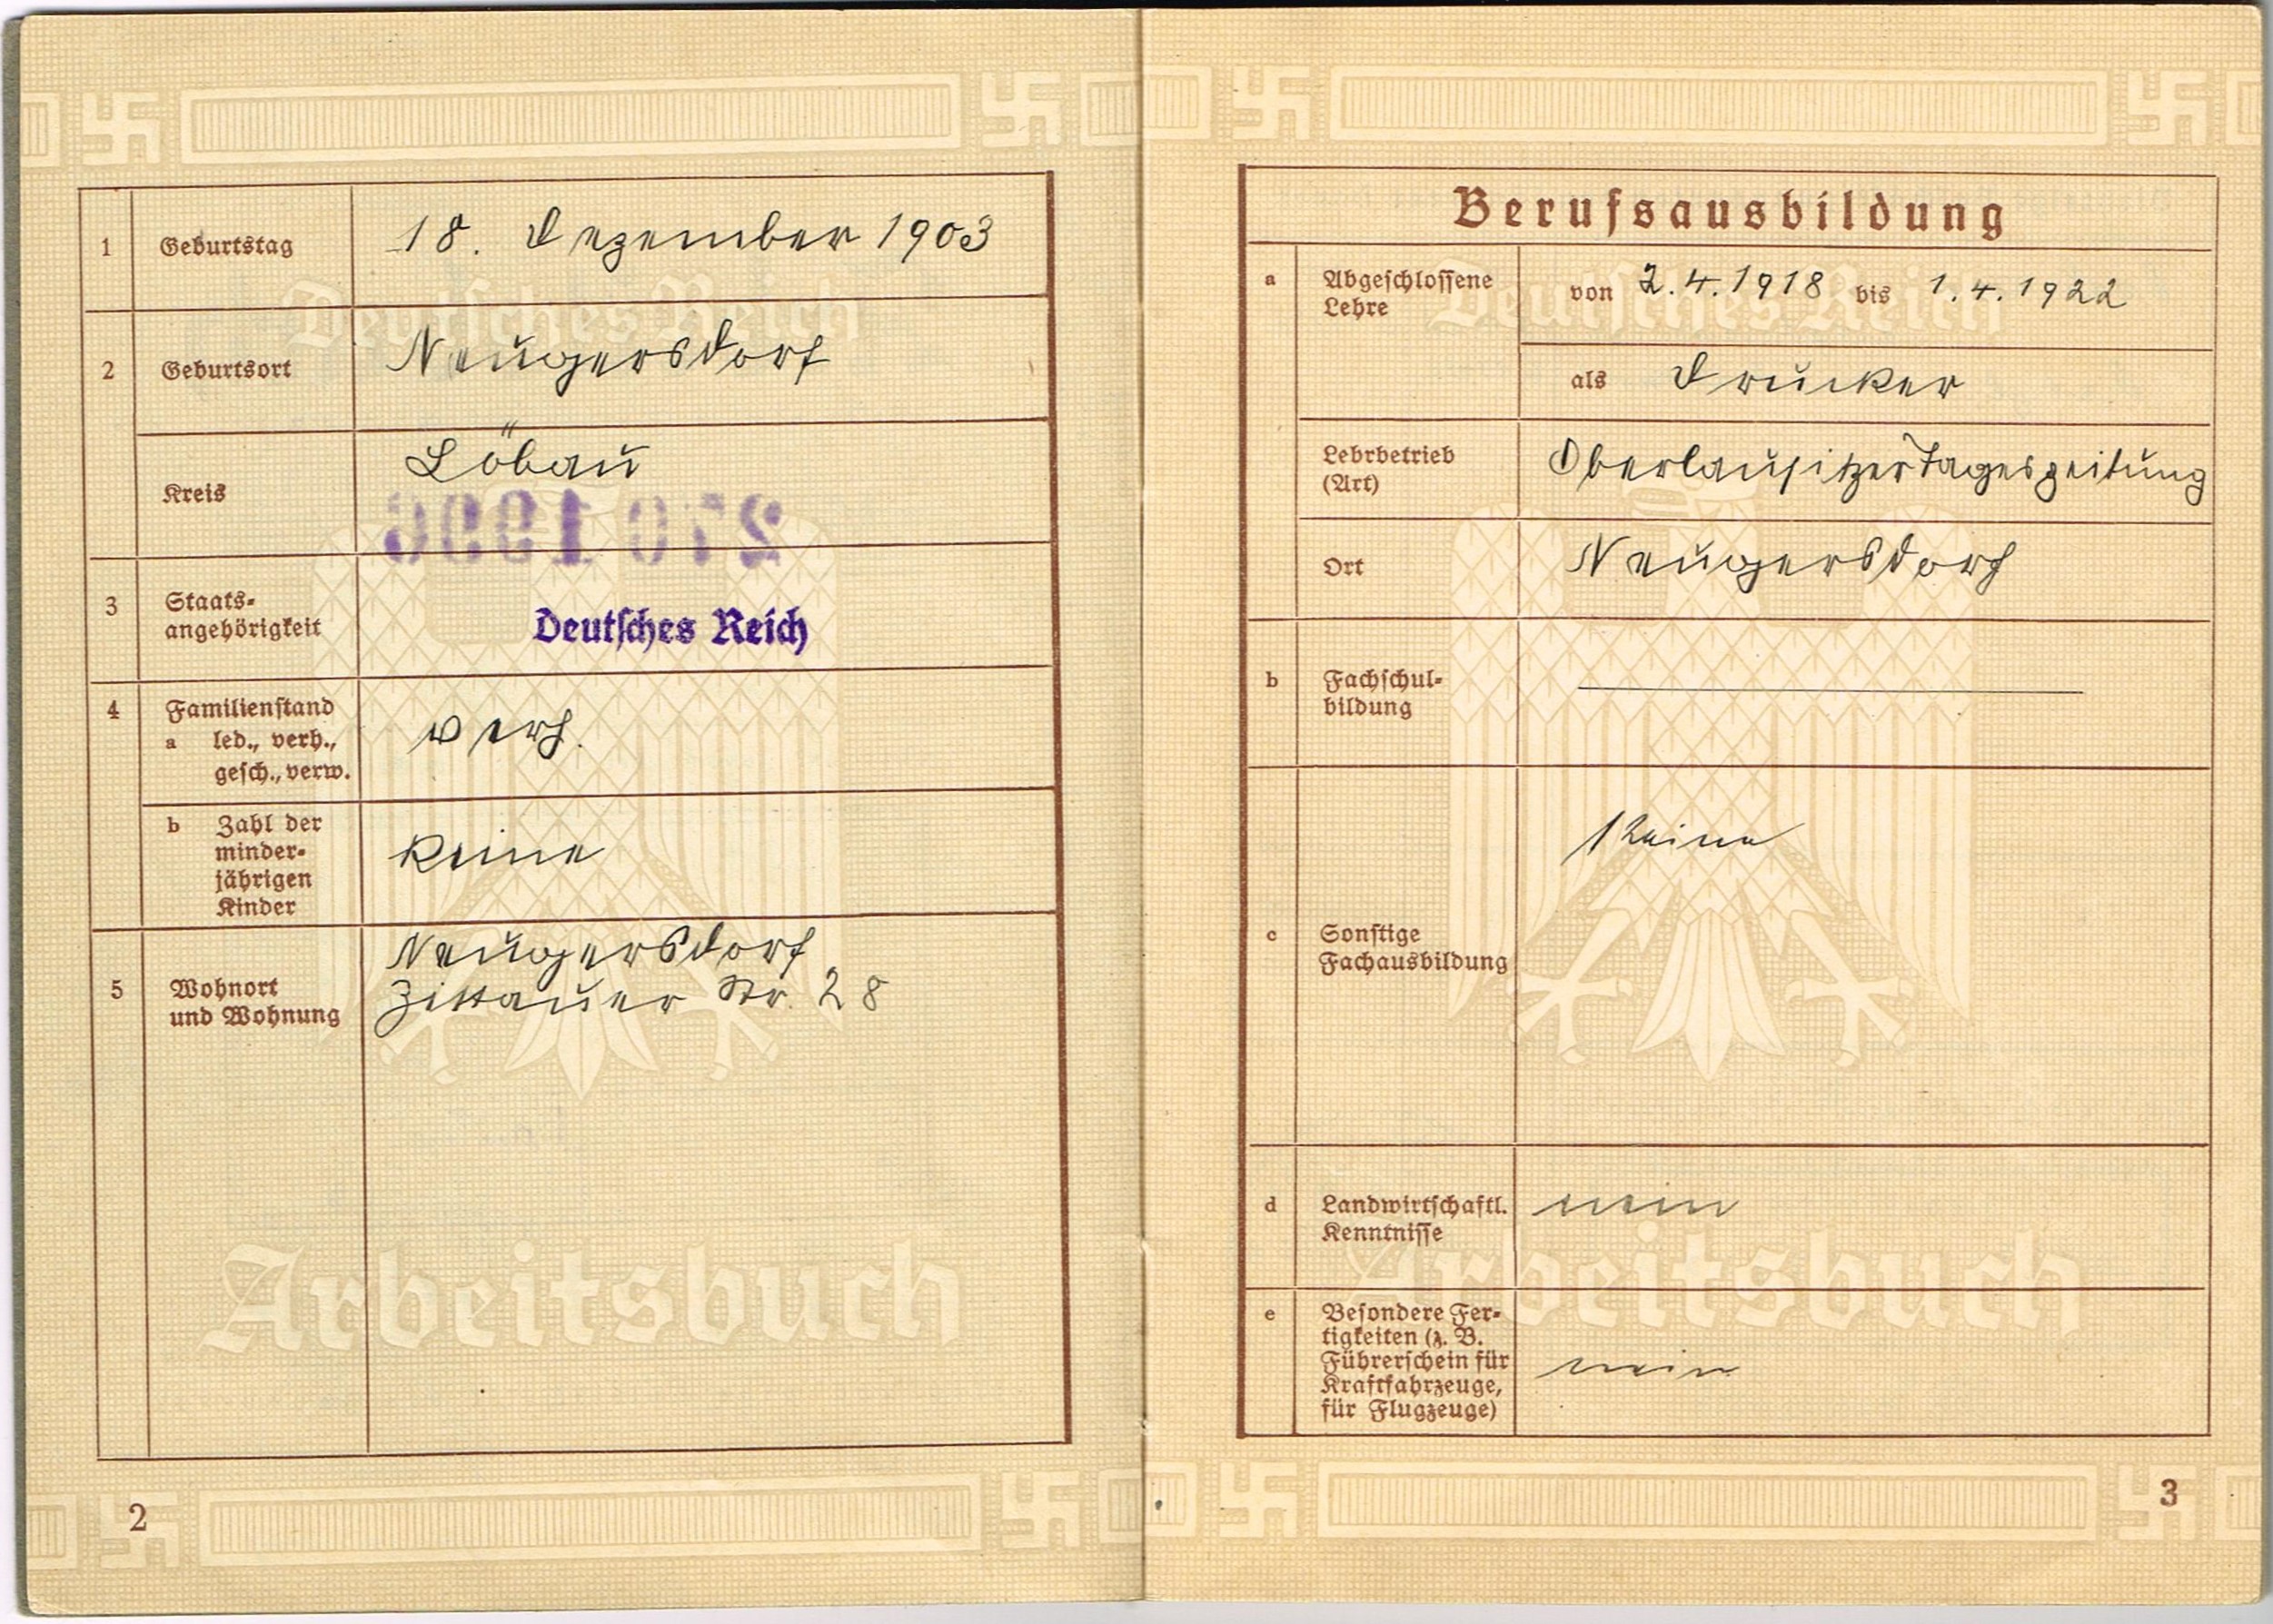 Deutsches Reich
1 Geburtstag 18. Dezember 1903
2 Geburtsort Neugersdorf
Kreis Löbau
3 Staats-
angehörigkeit Deutsches Reich
4 Familienstand
a led., verh.,
gesch., verw. verh.
b Zahl der
minder-
jährigen
Kinder Keine
5 Wohnort
und Wohnung
Neugersdorf
Zittauer Str. 28
Arbeitsbuch
2
Berufsausbildung
Deutsches Reich
a Abgeschlossene
Lehre
von 2.4.1918 bis 1.4.1922
als Drucker
Lehrbetrieb
(Art)
Oberlausitzer Tageszeitung
Ort Neugersdorf
b Fachschul-
bildung
c Sonstige
Fachausbildung
Keine
d Landwirtschaftl.
Kenntnisse
nein
e Besondere Fer-
tigkeiten (z. B.
Führerschein für
Kraftfahrzeuge,
für Flugzeuge)
nein
Arbeitsbuch
3